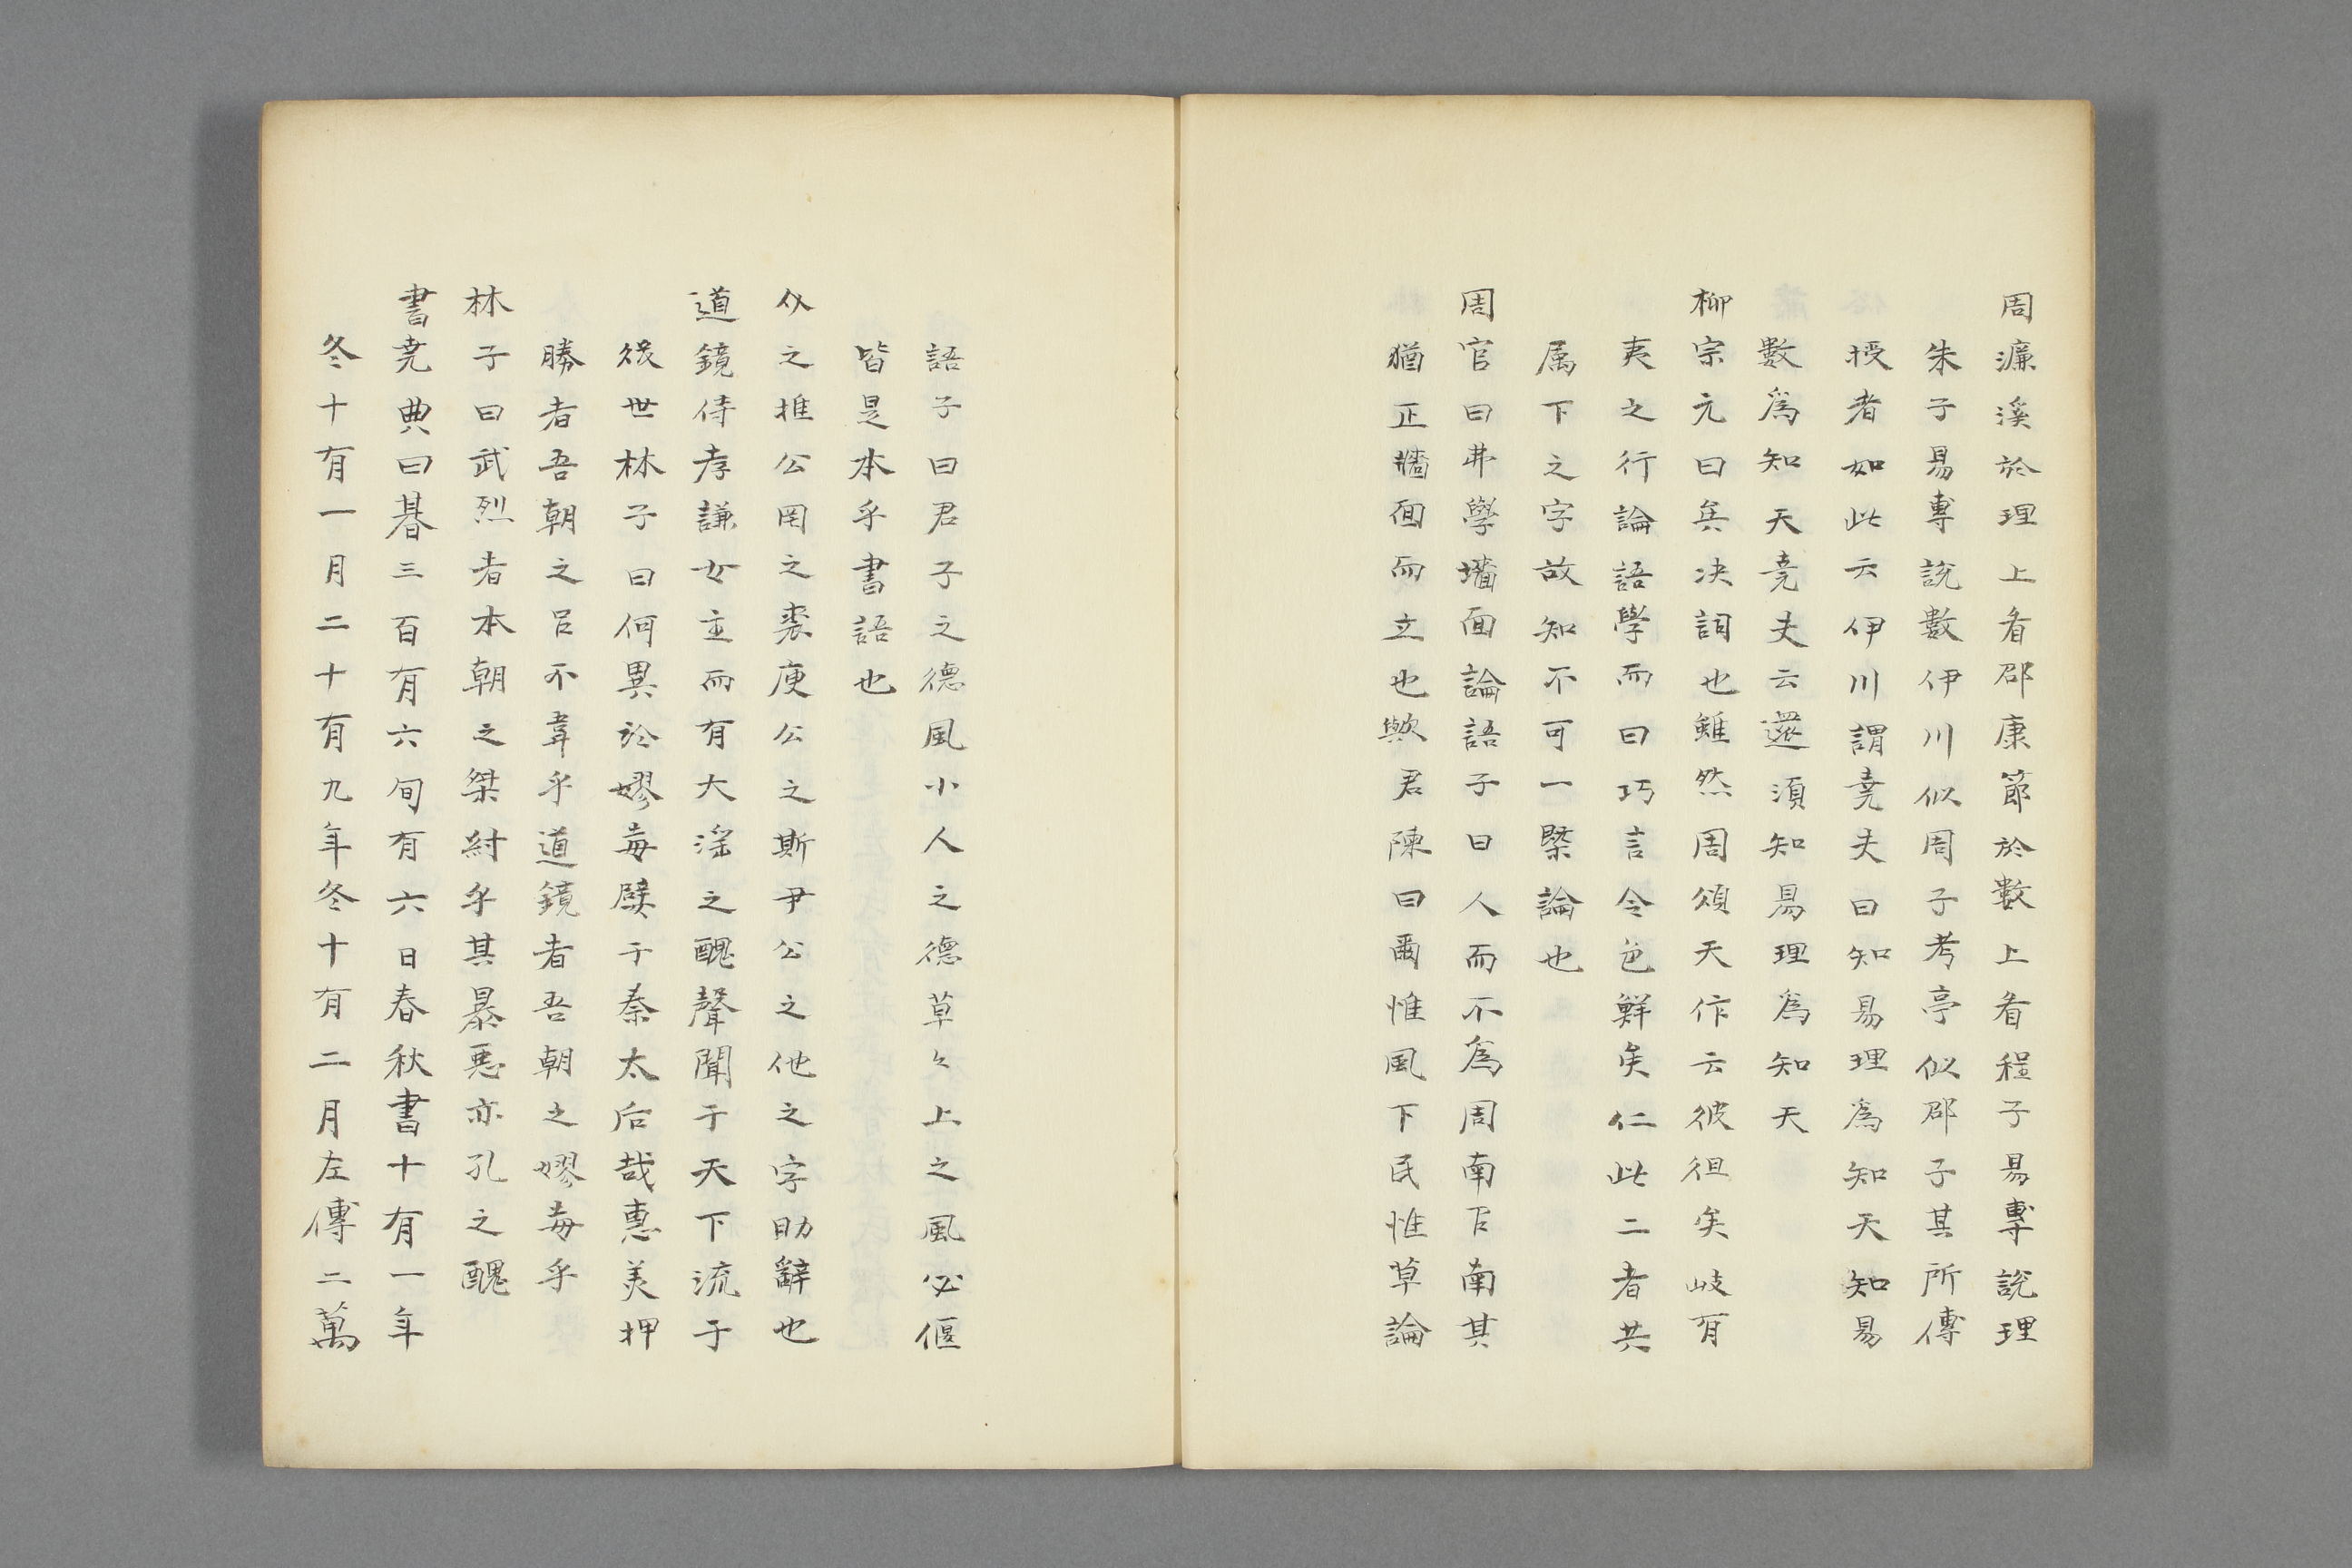 周濂溪於理上看邵康節於數上看程子易專說理
朱子易專說數伊川似周子考亭似邵子其所傳
授者如此云伊川謂堯夫曰知易理為知天知易
數為知天堯夫云還須知易理為知天
柳宗元曰矣決詞也雖然周頌天作云彼徂矣岐有
夷之行論語學而曰巧言令色鮮矣仁此二者共
属下之字故知不可一槩論也
周官曰弗學墻面論語子曰人而不為周南召南其
猶正牆面而立也歟君陳曰爾惟風下民惟草論
語子曰君子之德風小人之德草々上之風必偃
皆是本乎書語也
公之推公罔之裘庾公之斯尹公之他之字助辭也
道鏡侍孝謙女主而有大淫之醜聲聞于天下流于
後世林子曰何異於嫪毐嬖于秦太后哉惠美押
勝者吾朝之呂不韋乎道鏡者吾朝之嫪毐乎
林子曰武烈者本朝之桀紂乎其暴悪亦孔之醜
書堯典曰朞三百有六旬有六日春秋書十有一年
冬十有一月二十有九年冬十有二月左傳二萬